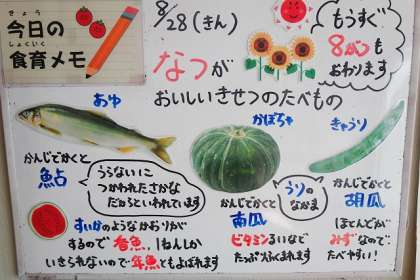 きょう
今日の
しょくいく
食育メモ
8/28(きん)
なつが
おいしいきせつのたべもの
もうすぐ
8がつも
おわります
あゆ
かんじでかくと
鮎
うらないに
つかわれたさかな
だからといわれています
すいかのようなかおりが
するので香魚、1ねんしか
いきられないので年魚ともよばれます
かぼちゃ
うりの
なかま
かんじでかくと
南瓜
ビタミンるいなど
たっぷりふくまれます
きゅうり
かんじでかくと
胡瓜
ほとんどが
みずなので
たべやすい!